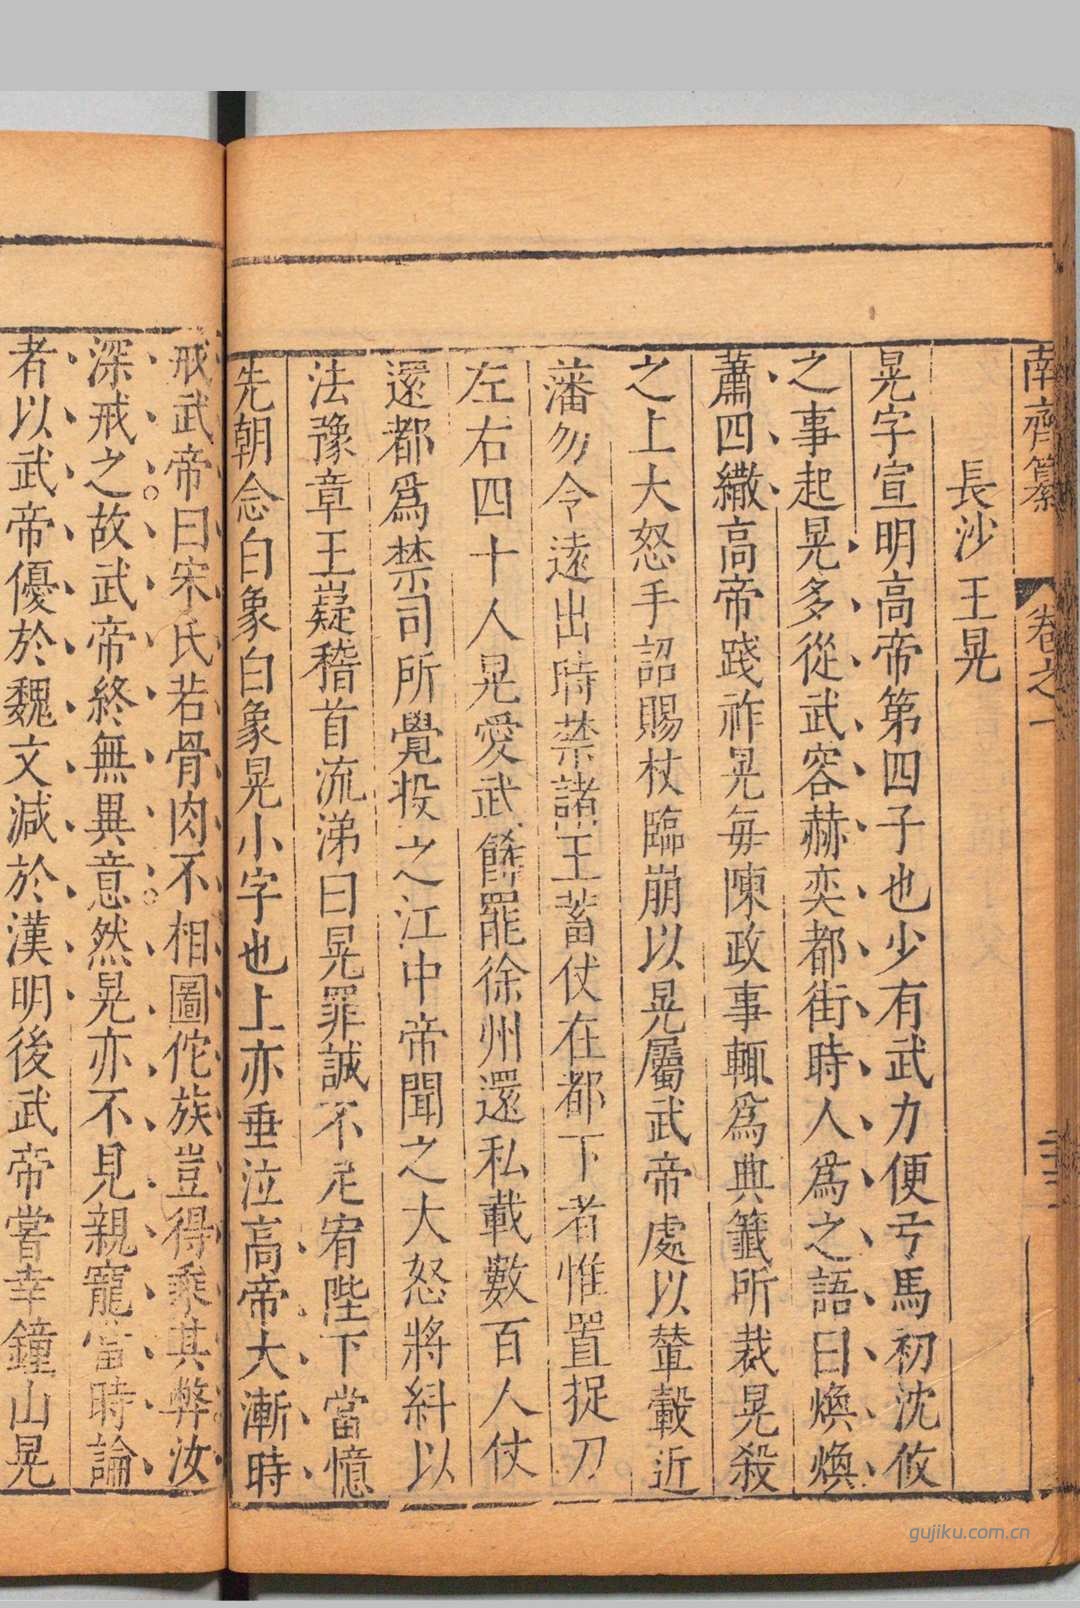 南齊纂 卷之一
長沙王晃
晃字宣明高帝第四子也少有武力便弓馬初沈攸
之事起晃多從武容赫奕都街時人爲之語曰煥煥
蕭四繖高帝踐祚晃每陳政事輒爲典籤所裁晃殺
之上大怒手詔賜杖臨崩以晃屬武帝處以輦轂近
藩勿令遠出時禁諸王蓄仗在都下者惟置捉刀
左右四十人晃愛武餙罷徐州還私載數百人仗
還都爲禁司所覺投之江中帝聞之大怒將糾以
法豫章王嶷稽首流涕曰晃罪誠不足宥陛下當憶
先朝念白象白象晃小字也上亦垂泣高帝大漸時
戒武帝曰宋氏若骨肉不相圖佗族豈得乘其弊汝
深戒之故武帝終無異意然晃亦不見親寵當時論
者以武帝優於魏文減於漢明後武帝嘗幸鐘山晃
gujiku.com.cn